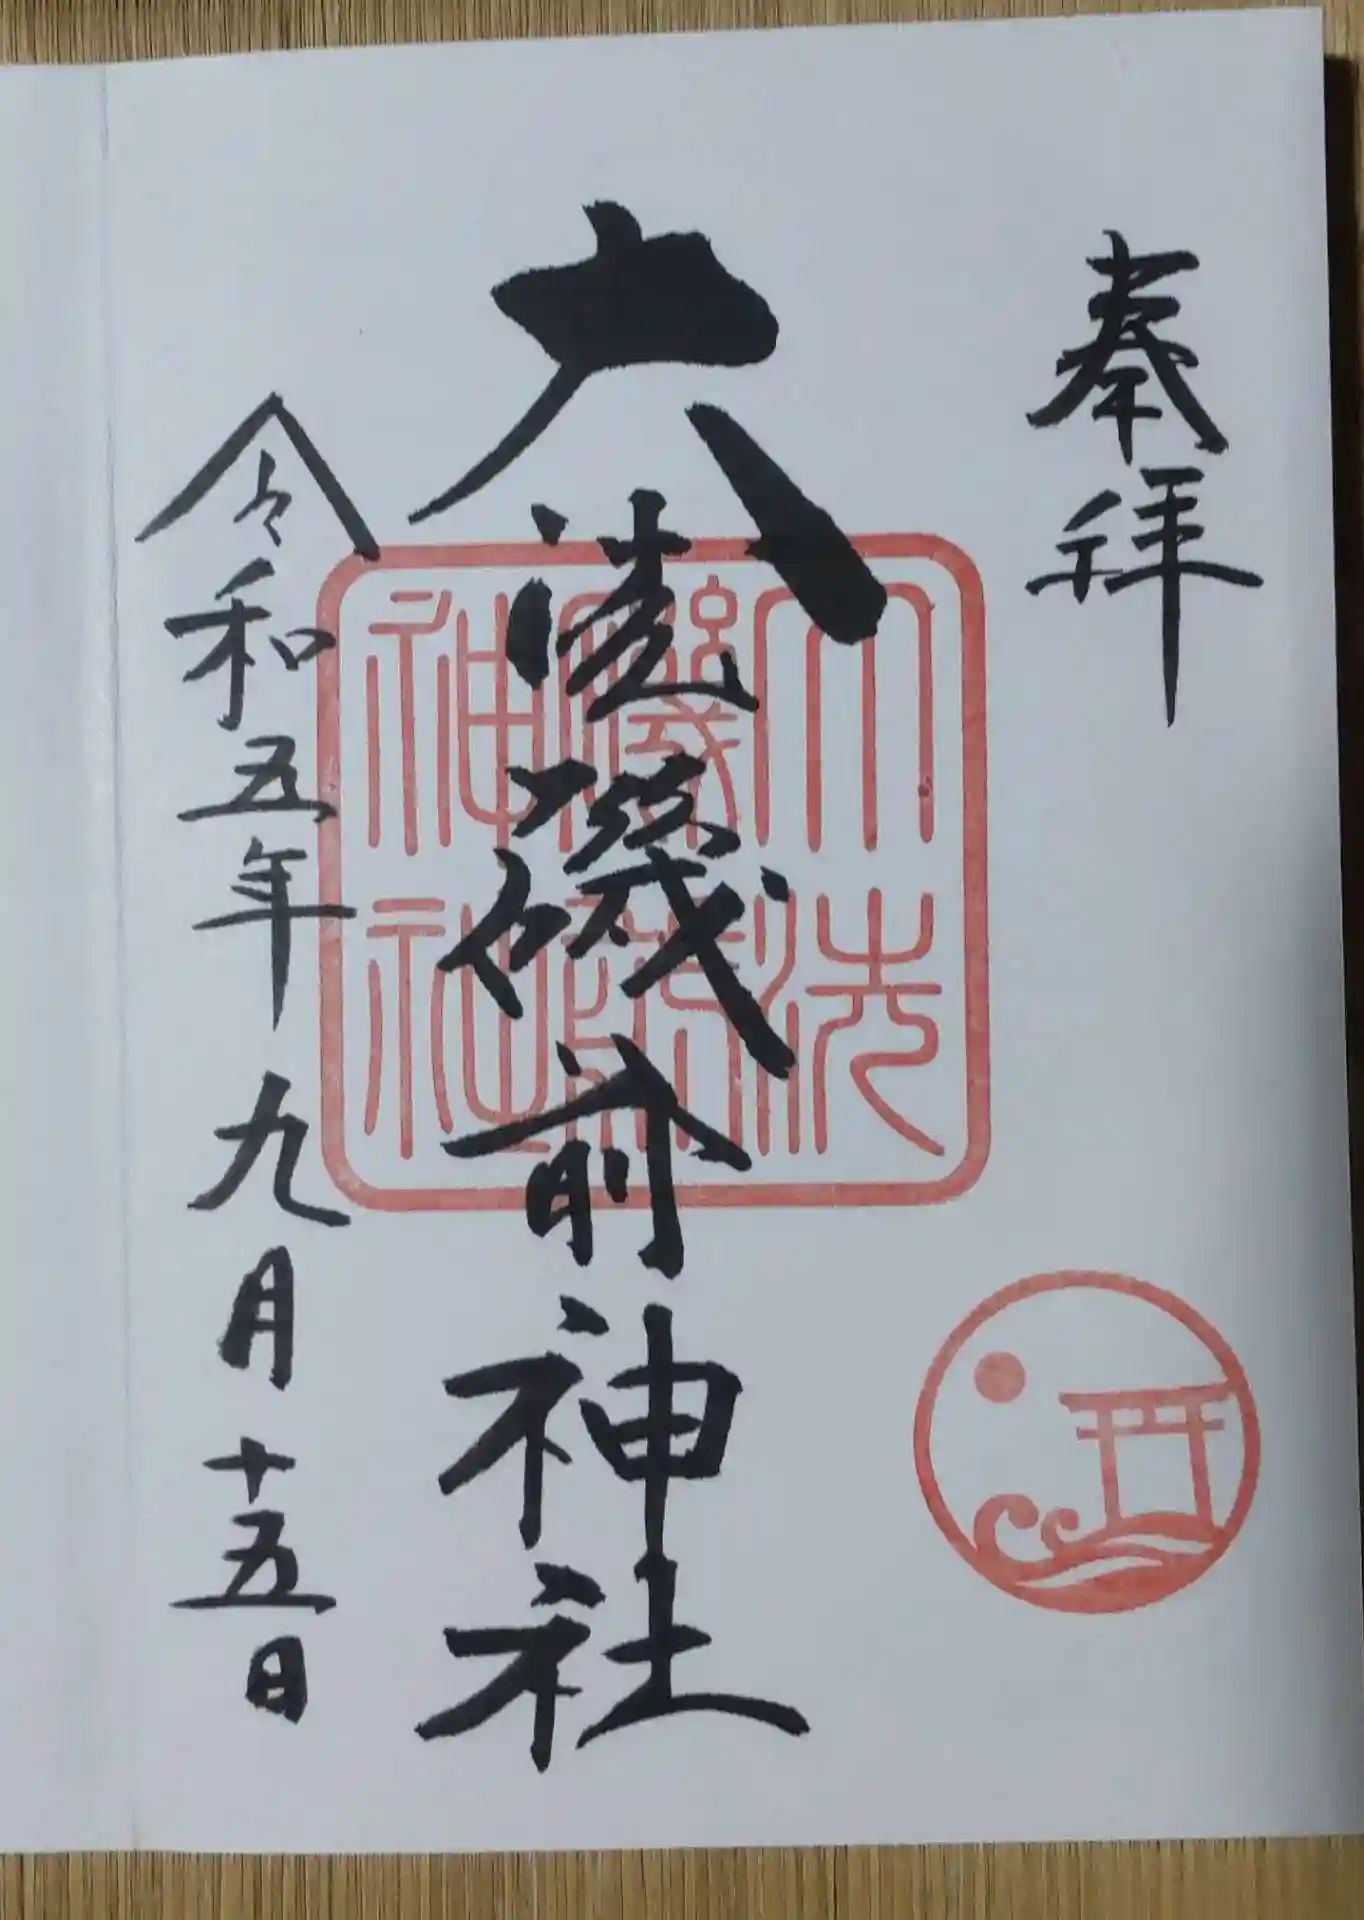 奉拝
大洗磯前神社
大洗
磯前
神社
令和五年九月十五日